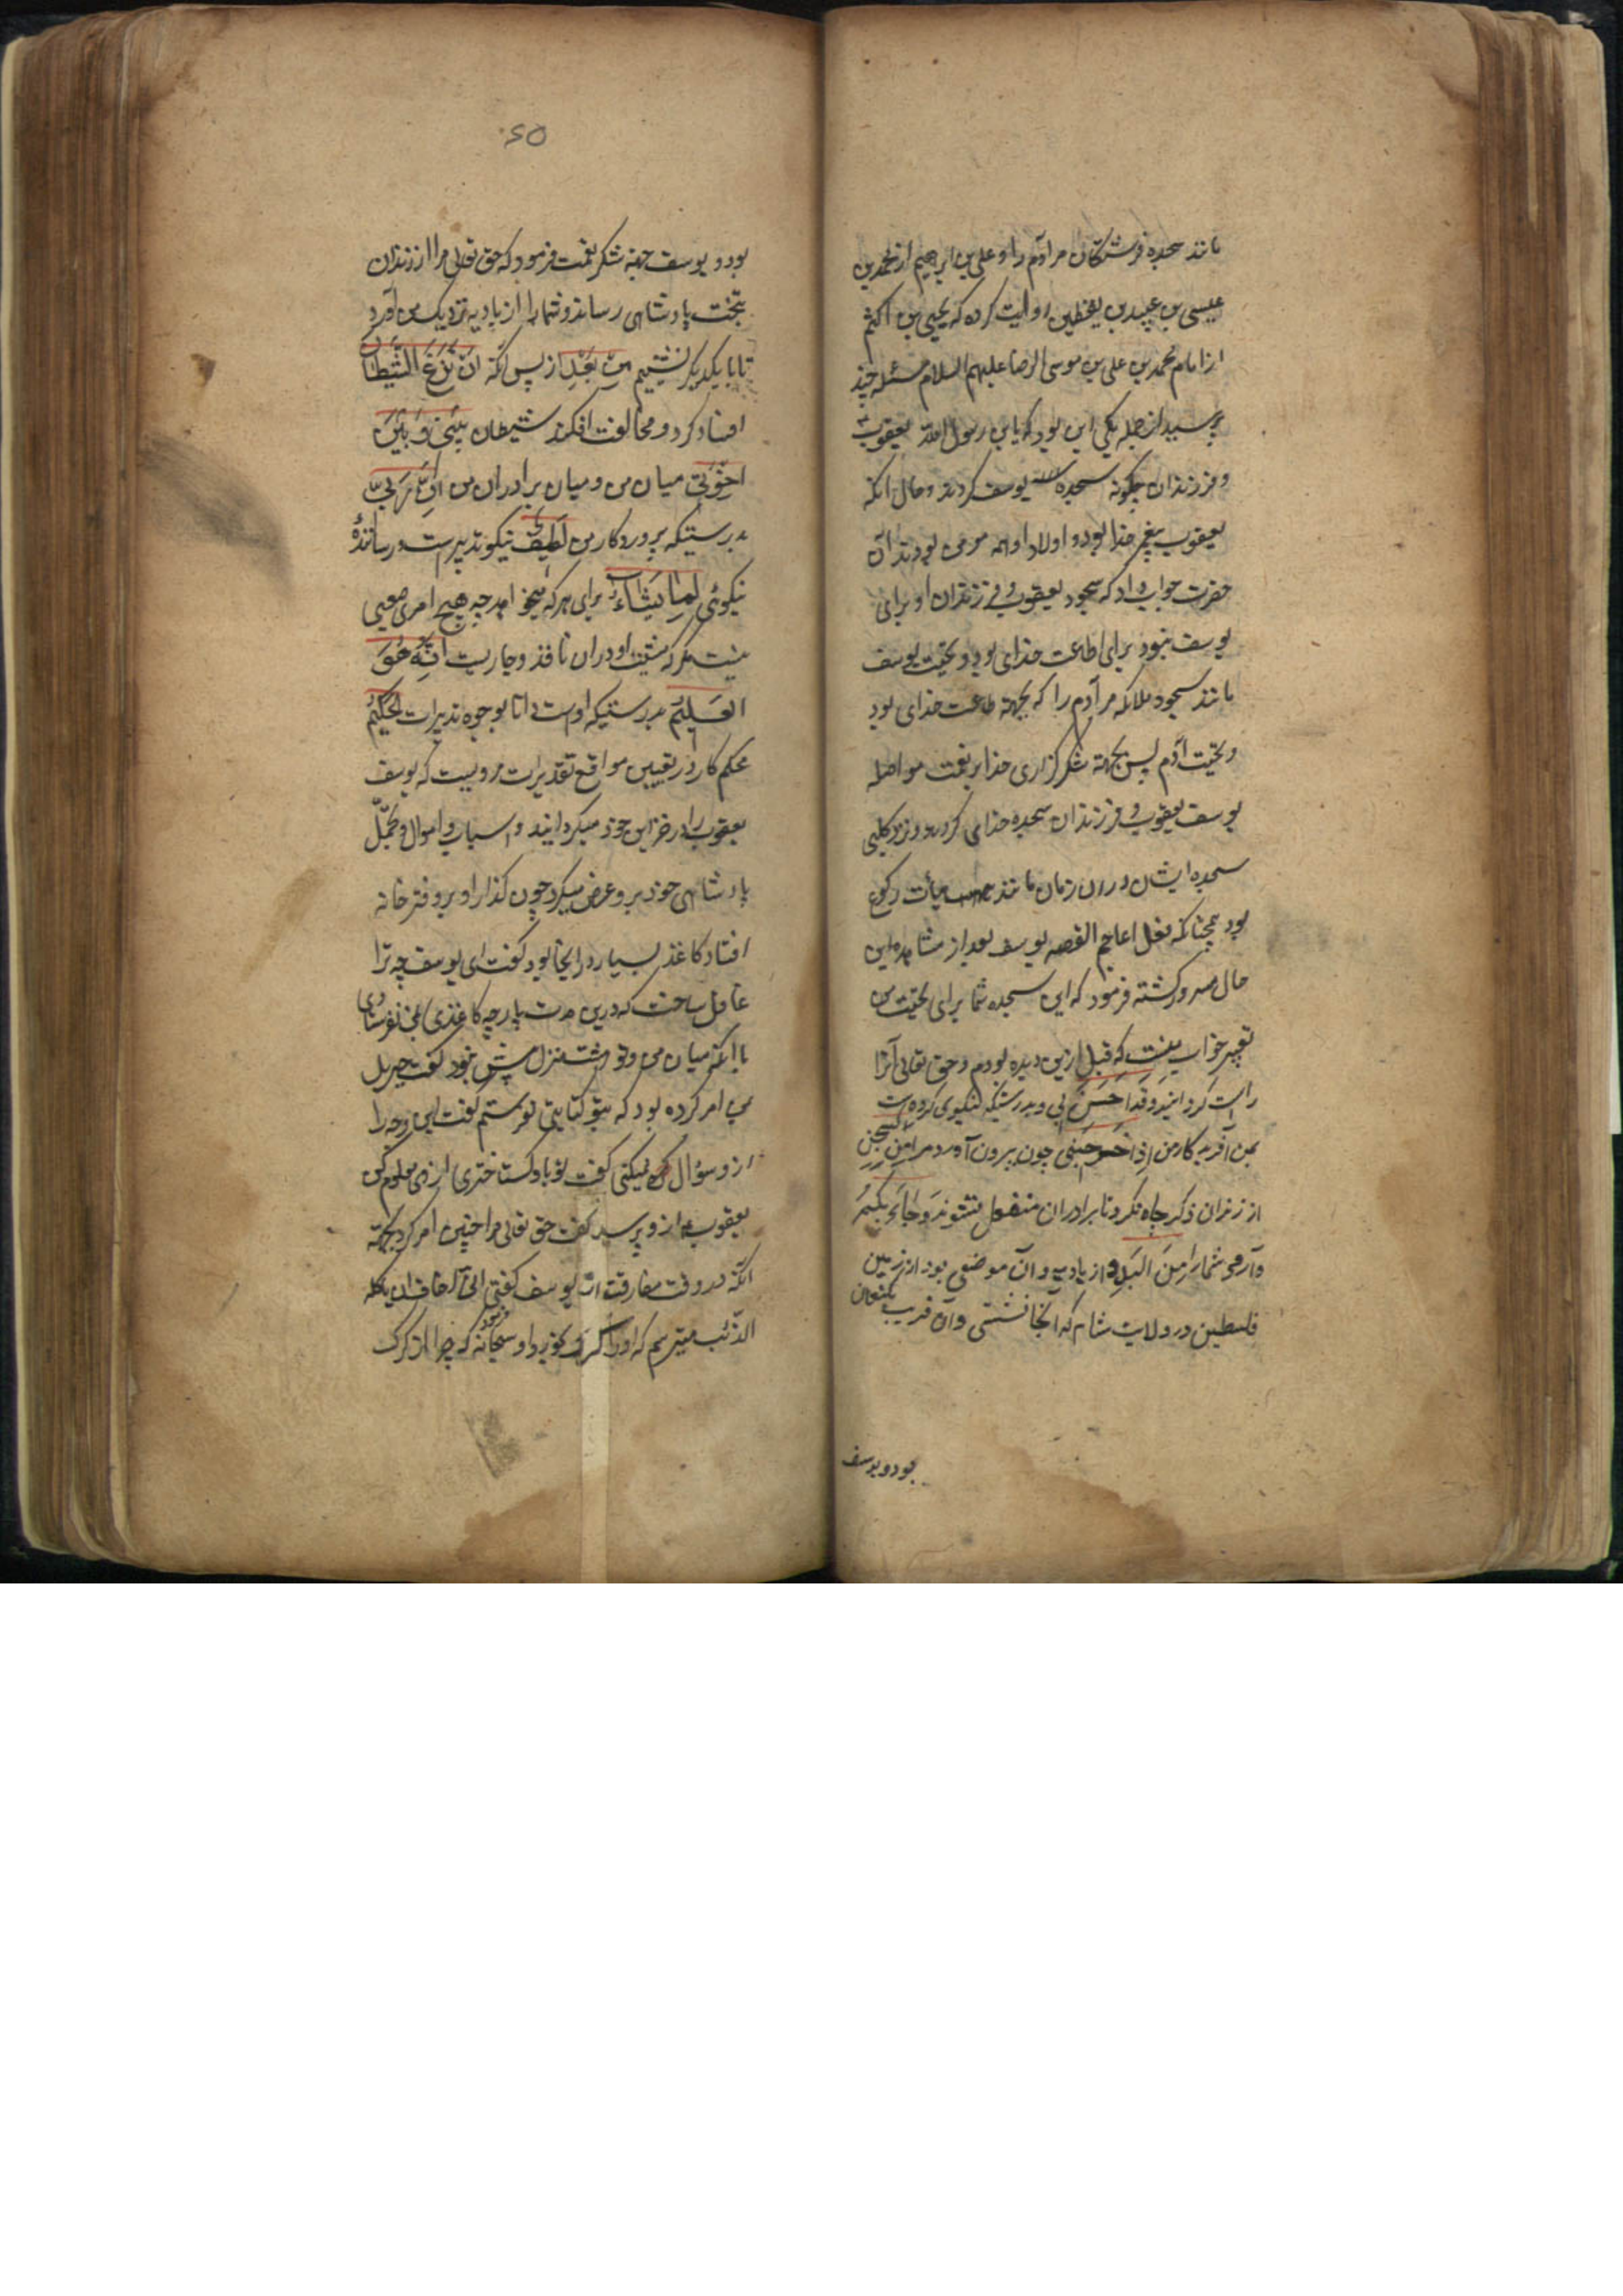 مانند سجده فرشتگان مر آدم را و علی بن ابرهیم از محمد بن
عیسی بن عبید بن یقطین روایت کرده که یحیی بن اکثم
از امام محمد بن علی بن موسی الرضا علیهم السلام مسئله چند
پرسید از جمله یکی این بود که یابن رسول الله یعقوب
و فرزندان چگونه سجده یوسف کردند و حال آنکه
یعقوب پیغمبر خدا بود و اولاد او همه مومن بودند آن
حضرت جواب داد که سجود یعقوب و فرزندان او برای
یوسف نبود برای اطاعت خدای بود و تحیت یوسف
مانند سجود ملائکه مر آدم را که بجهة طاعت خدای بود
و تحیت آدم پس بجهة شکرگزاری خدا بر نعمت مواصله
یوسف یعقوب و فرزندان سجده خدای کردند و نزد کلبی
سجده ایشان دران زمان مانند هیأت رکوع
بود همچنانکه فعل اعاجم القصه یوسف بعد از مشاهده این
حال مسرور گشته فرمود که این سجده شما برای تحیت من
تعبیر خوابیست که قبل ازین دیده بودم و حق تعالی آنرا
راست گردانید وَقَد اَحسَنَ بی و بدرستیکه نیکوی کرده است
بمن آفریدکار من اِذ اَخرَجَنی چون بیرون آورد مرا مِنَ السِّجنِ
از زندان ذکر چاه نکرد تا برادران منفعل نشوند وَجاءَ بِکُم
و آورد شما را مِنَ البَدوِ از بادیه و آن موضعی بود از زمین
فلسطین در ولایت شام که آنجا نشستی و آن قریب بکنعان
بود و یوسف
۶۵
بود و یوسف جهة شکر نعمت فرمود که حق تعالی مرا از زندان
بتخت پادشاهی رساند و شما را از بادیه نزدیک من آورد
تا با یکدیگر نشینیم مِن بَعدِ از پس آنکه اَن نَزَغَ الشَّیطانُ
افساد کرد و مخالفت افکند شیطان بَینی وَ بَینَ
اِخوَتی میان من و میان برادران من اِنَّ رَبّی
بدرستیکه پروردکار من لَطیفٌ نیکو تدبیرست و رسانندهٔ
نیکوئی لِما یَشاءُ برای هر که میخواهد چه هیچ امری صعبی
نیست مکر که مشیت او دران نافذ و جاریست اِنَّهُ هُوَ
العَلیمُ بدرستیکه اوست دانا بوجوه تدبیرات الحَکیمُ
محکم کار در تعیین مواقع تقدیرات مرویست که یوسف
یعقوب را در خزاین خود میگردانید و اسباب و اموال و تجمّل
پادشاهی خود برو عرض میکرد چون گذار او بر دفتر خانه
افتاد کاغذ بسیار در اینجا بود گفت ای یوسف چه ترا
غافل ساخت که درین مدت پارچه کاغذی بمن نفرستادی
با آنکه میان من و تو هشت منزل بیش نبود گفت جبریل
مرا امر کرده بود که بتو کتابتی نفرستم گفت این وجه را
ازو سؤال نمیکنی گفت تو باو گستاختری ازوی معلوم کن
یعقوب ازو پرسید گفت حق تعالی مرا چنین امر کرد بجهة
آنکه در وقت مفارقت از یوسف گفتی اِنّی اَخافُ اَن یَأکُلَه
الذِّئب میترسم که اورا گرگ بخورد او سبحانه فرمود که چرا از گرگ